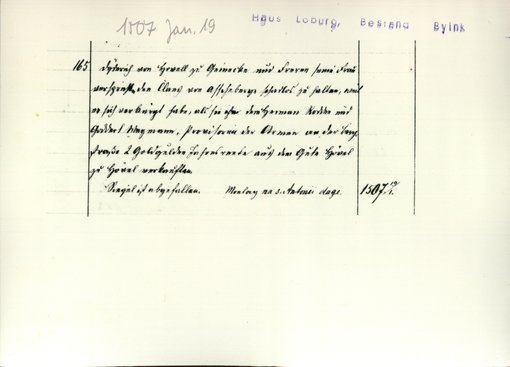 1507 Jan. 19
Haus Loburg, Bestand Byink
165 Dyderich von Hövell zu Geinecke und Freren seine Frau
versprechen, den Claus von Asscheberg schadlos zu halten, weil
er sich verbürgt habe, als sie eher dem Herman Kodde und
Goddert Wegmann, Provisoren der Armen an der
straße 2 Goldgulden Jahresrente aus dem Gute Hövel
zu Hövel verkauften.
Siegel ist abgefallen. Montag na s. Antonii dage 1507 19/1.